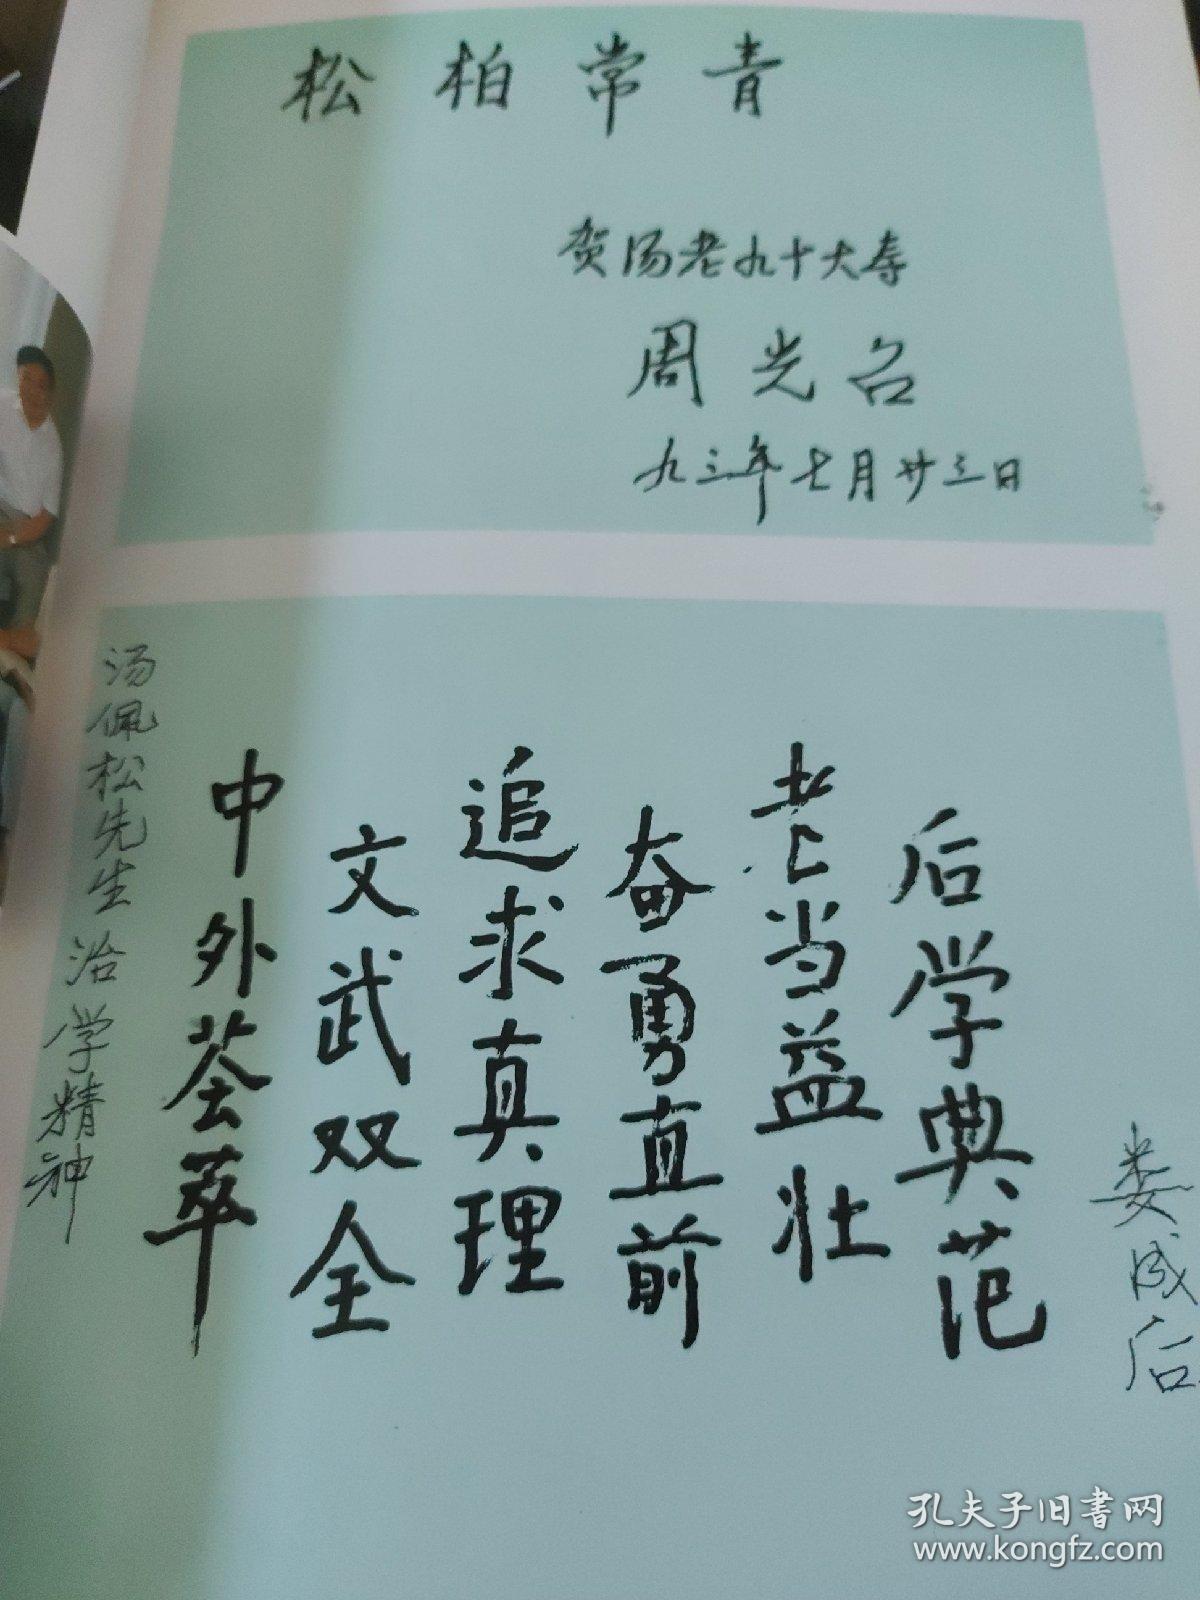 松柏常青
贺汤老九十大寿
周光召
九三年七月廿三日
汤佩松先生治学精神
中外荟萃
文武双全
追求真理
奋勇直前
老当益壮
后学典范
娄成后
孔夫子旧书网
www.kongfz.com